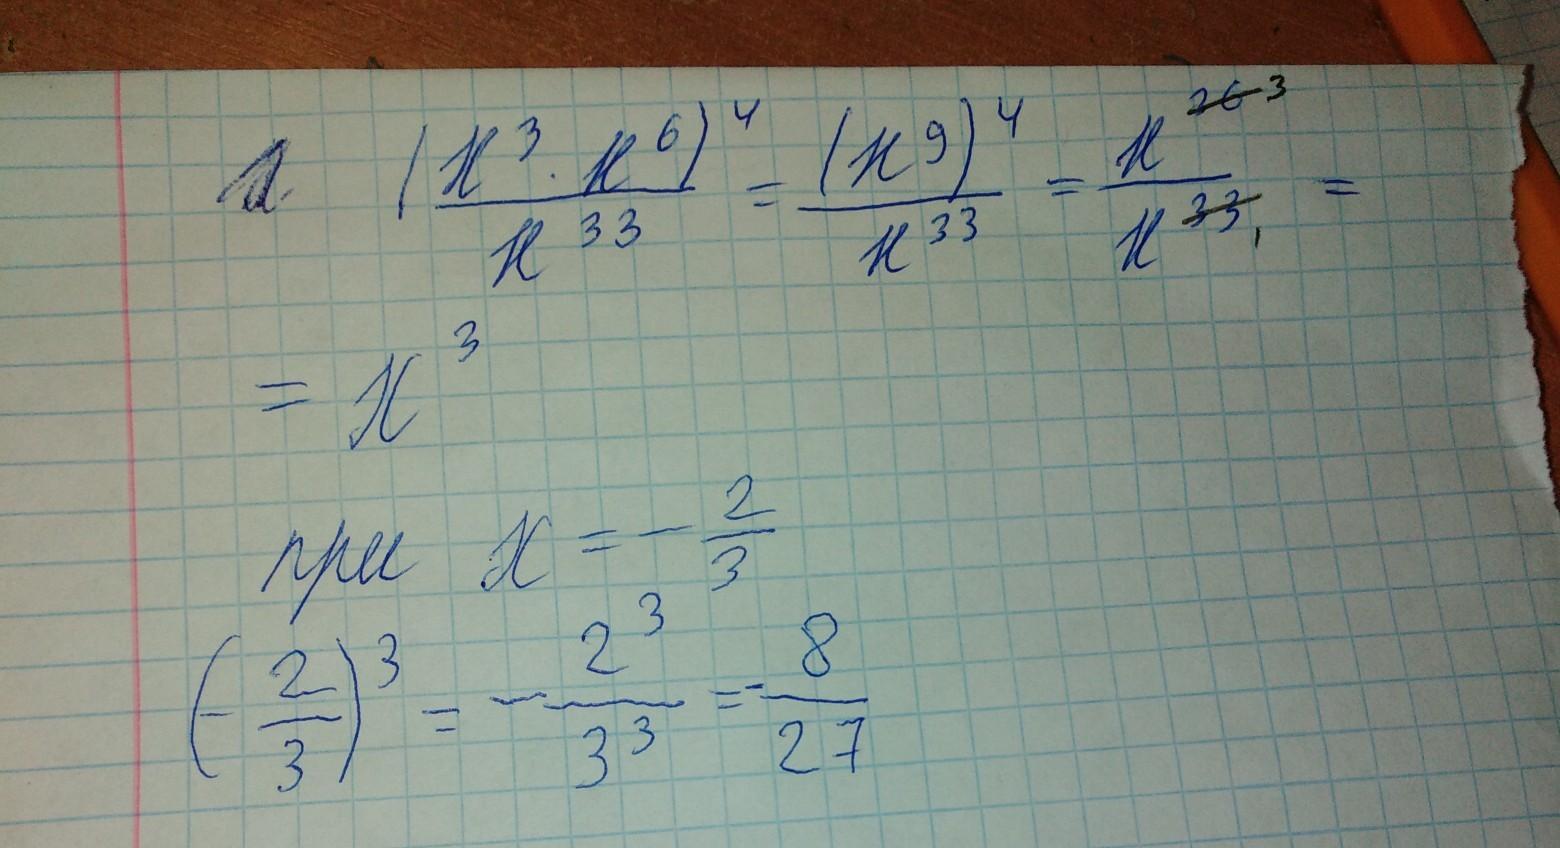 (x³ · x⁶)⁴ / x³³ = (x⁹)⁴ / x³³ = x³ / x³³ =
= x³
при x = - 2/3
(- 2/3)³ = - 2³/3³ = - 8/27